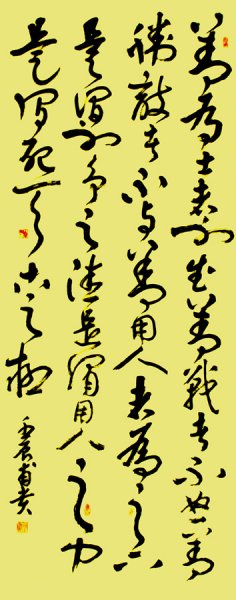 善為士者不武善戰者不怒善
勝敵者不与善用人者為之下
是謂不爭之德是謂用人之力
是謂配天古之極
壬辰